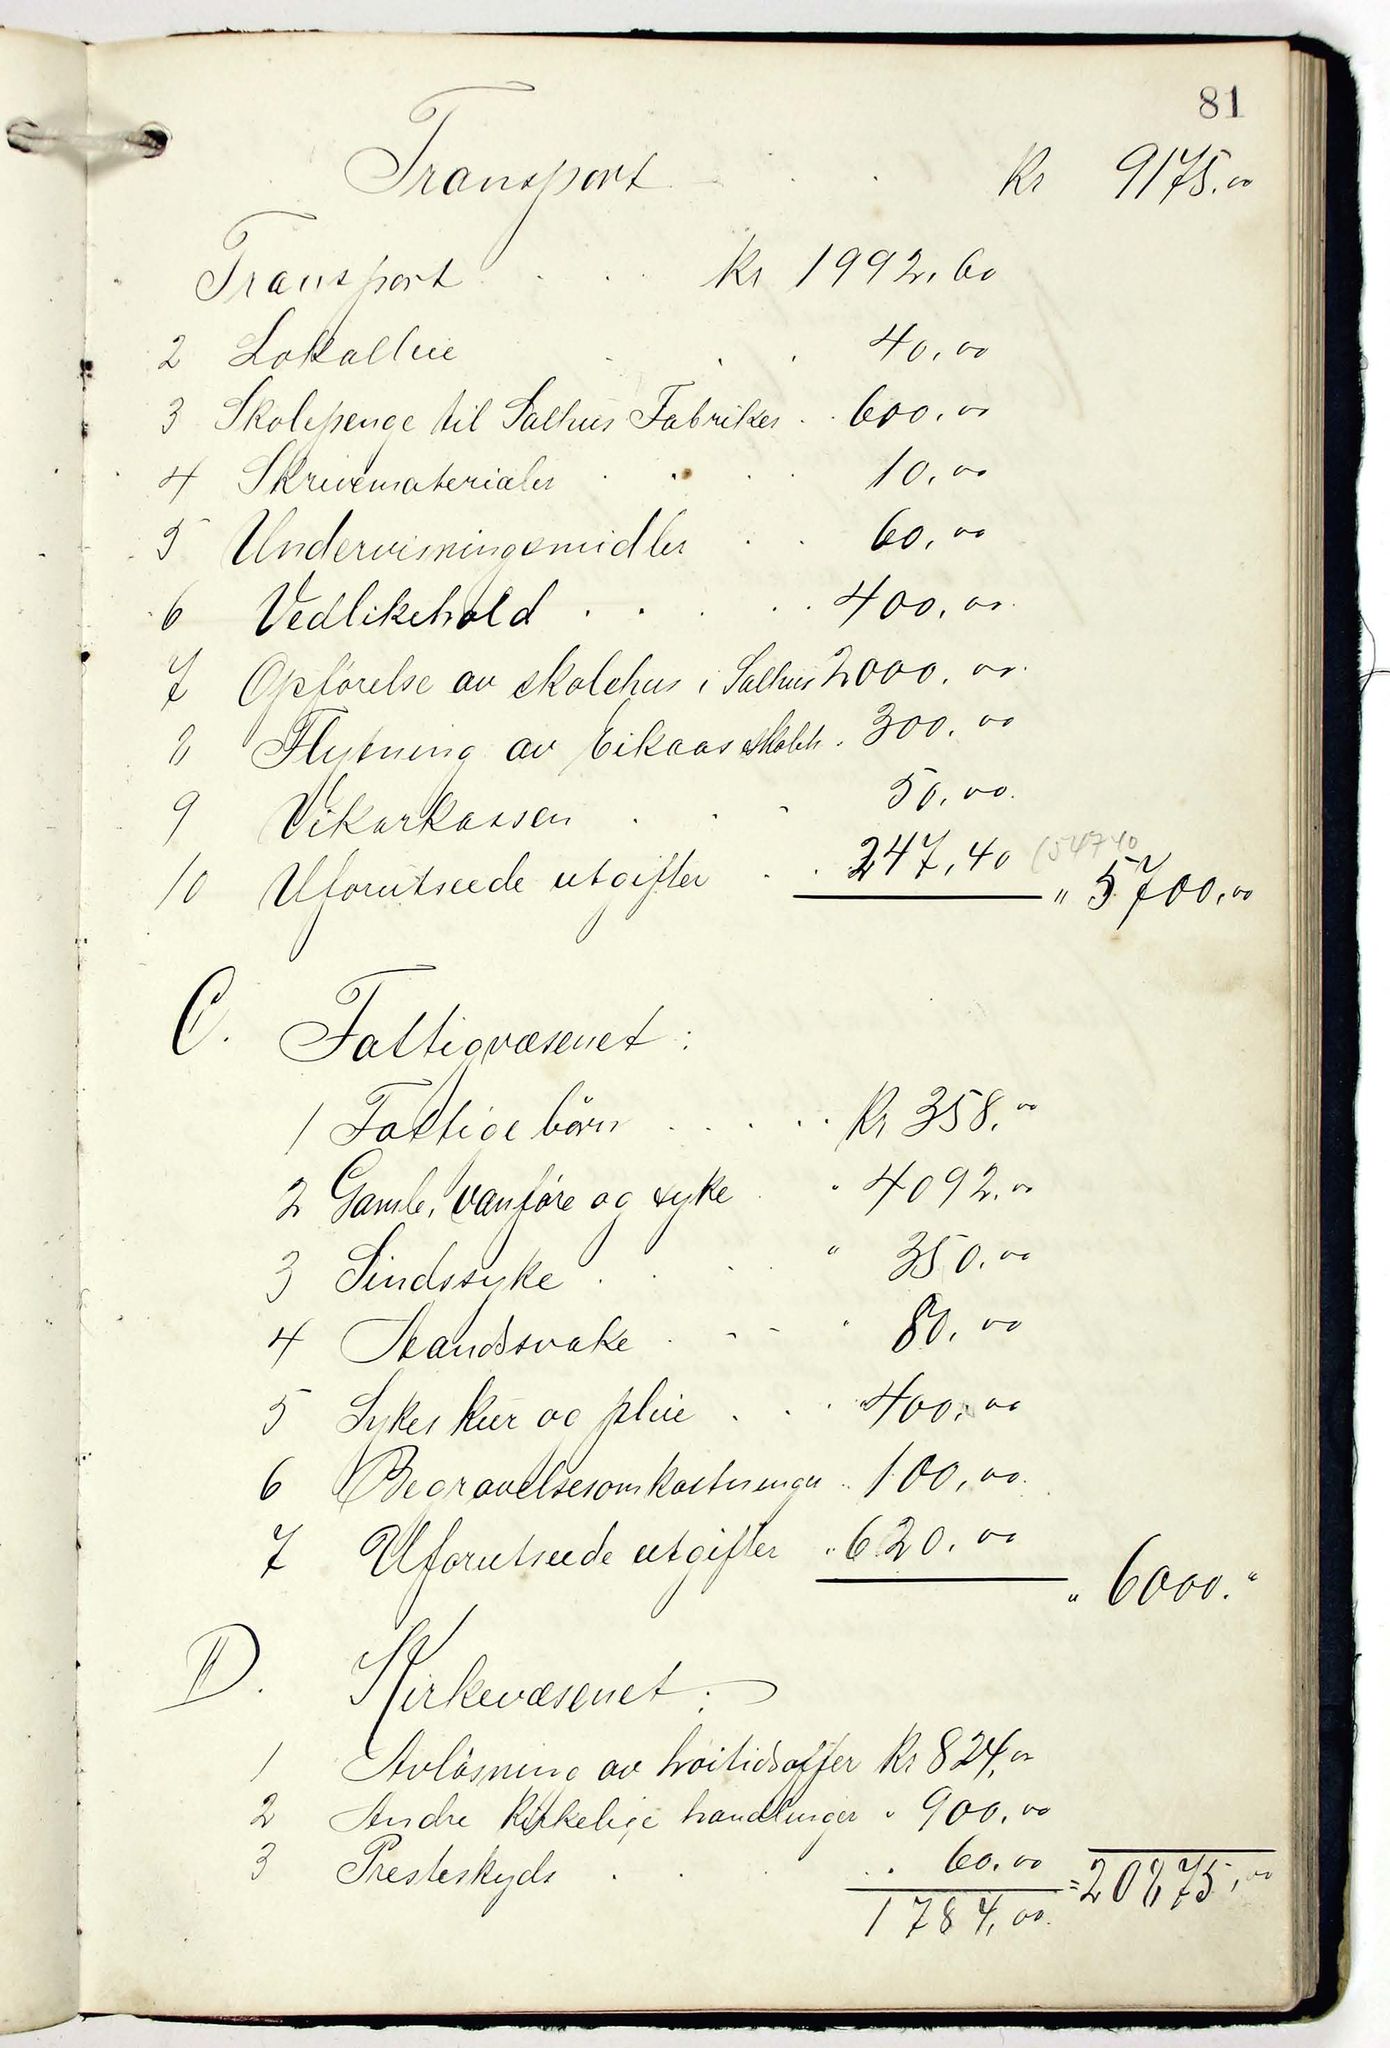 81
Transport . . kr 9175.00
Transport . . . kr 1992,60
2 Lokalleie . . . 40,00
3 Skolepenge til Salhus Fabriker . . 600,00
4 Skrivematerialer . . . 10,00
5 Undervisningsmidler . . 60,00
6 Vedlikehold . . . . . 400,00
7 Opførelse av skolehus i Salhus 2000,00
8 Flytning av Eikaas skoleh. 300,00
9 Vikarkassen . . . 50,00
10 Uforutseede utgifter . . 247,40 " 5700,00
C. Fattigvæsenet:
1 Fattige børn . . . . . kr 358,00
2 Gamle, vanføre og syke . " 4092,00
3 Sindssyke . . . " 350,00
4 Aandssvake . - - " 80,00
5 Sykes kur og pleie . . . " 400,00
6 Begravelsesomkostninger " 100,00
7 Uforutseede utgifter " 620,00
" 6000."
D. Kirkevæsenet:
1 Avløsning av høitidsoffer kr 824,00
2 Andre kirkelige handlinger " 900,00
3 Presteskyds . . . 60,00 = 20875,00
1784,00